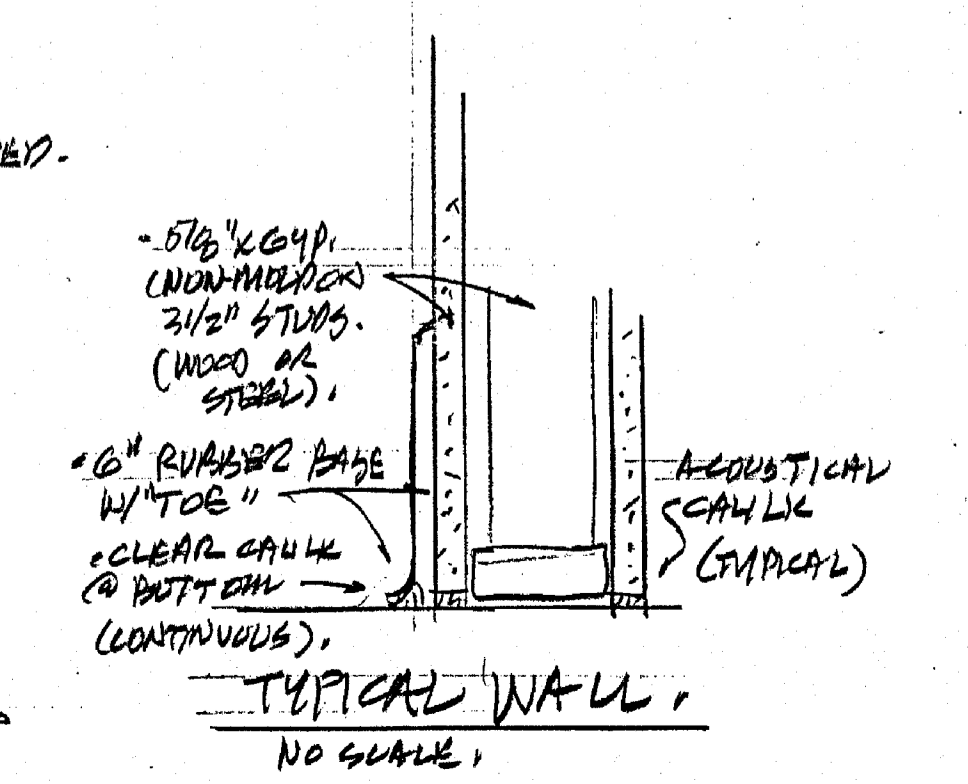 ED.
• 5/8" X GYP.
(NON-MOLD OR)
3 1/2" STUDS.
(WOOD OR
STEEL).
• 6" RUBBER BASE
W/ "TOE"
• CLEAR CAULK
@ BOTTOM
(CONTINUOUS).
ACOUSTICAL
CAULK
(TYPICAL)
TYPICAL WALL.
NO SCALE.